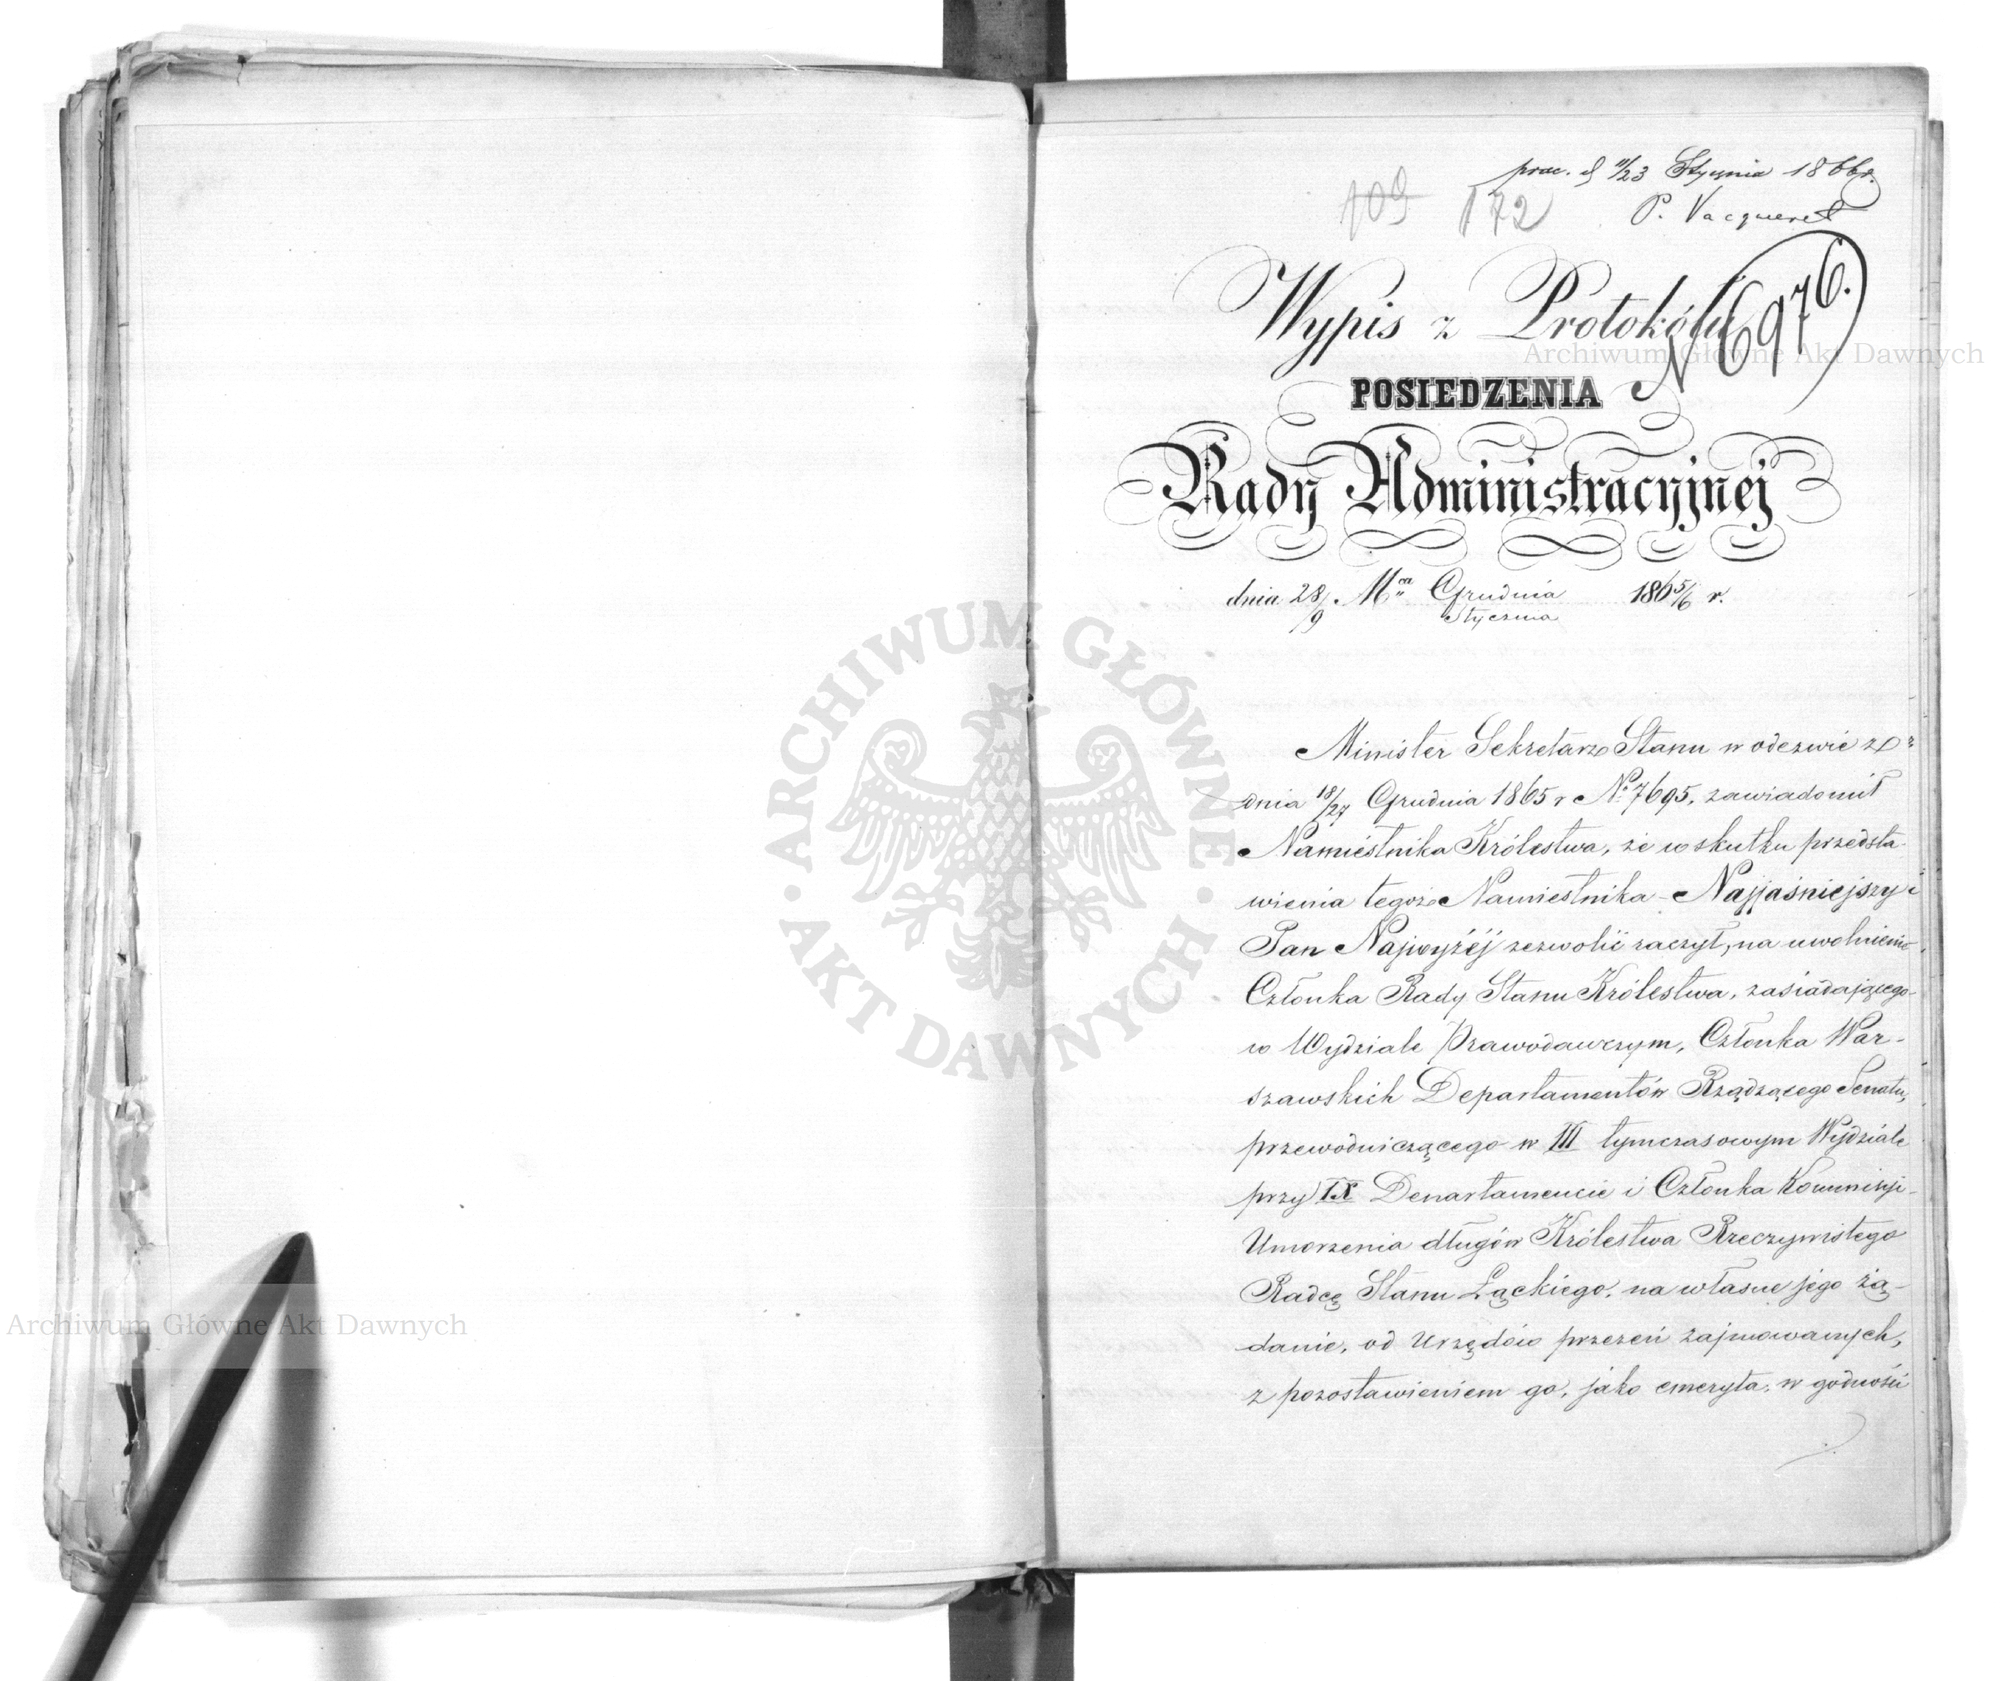 prac. d 11/23 Stycznia 1866 r.
109 172 P. Vacqueret
Wypis z Protokółu
N 6976.
POSIEDZENIA
Rady Administracyjnej
dnia 28/9 Mca Grudnia 1865/6 r.
Stycznia
Minister Sekretarz Stanu w odezwie z
dnia 18/27 Grudnia 1865 r No 7695, zawiadomił
Namiestnika Królestwa, że w skutku przedsta-
wienia tegoż Namiestnika - Najjaśniejszy
Pan Najwyżéj zezwolić raczył, na uwolnienie
Członka Rady Stanu Królestwa, zasiadającego
w Wydziale Prawodawczym, Członka War-
szawskich Departamentów Rządzącego Senatu,
przewodniczącego w III tymczasowym Wydziale
przy IX Departamencie i Członka Kommisji
Umorzenia długów Królestwa Rzeczywistego
Radcę Stanu Łąckiego, na własne jego żą-
danie, od Urzędów przezeń zajmowanych,
z pozostawieniem go, jako emeryta, w godności
ARCHIWUM GŁÓWNE AKT DAWNYCH
Archiwum Główne Akt Dawnych
Archiwum Główne Akt Dawnych